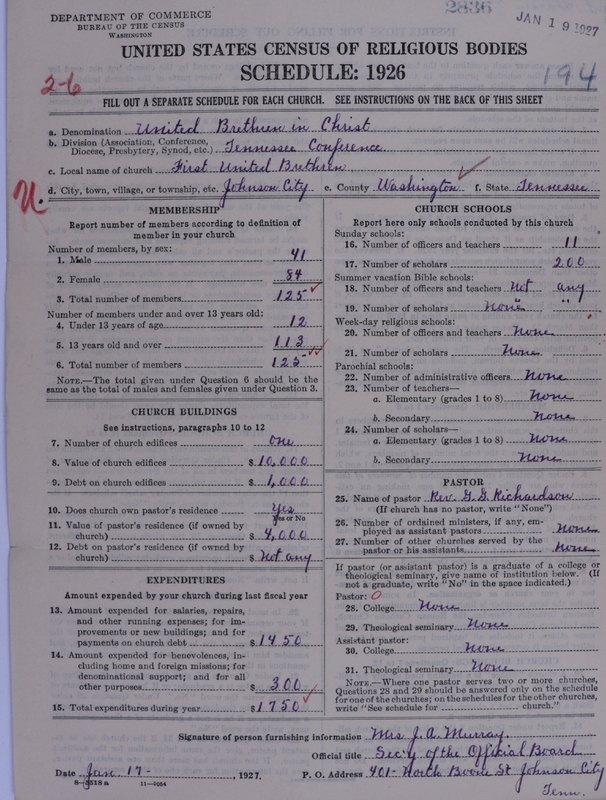 2836
JAN 19 1927
DEPARTMENT OF COMMERCE
BUREAU OF THE CENSUS
WASHINGTON
UNITED STATES CENSUS OF RELIGIOUS BODIES
SCHEDULE: 1926
2-6
194
FILL OUT A SEPARATE SCHEDULE FOR EACH CHURCH. SEE INSTRUCTIONS ON THE BACK OF THIS SHEET
a. Denomination United Brethren in Christ
b. Division (Association, Conference, Diocese, Presbytery, Synod, etc.) Tennessee Conference
c. Local name of church First United Brethren
d. City, town, village, or township, etc. Johnson City e. County Washington f. State Tennessee
U.
MEMBERSHIP
Report number of members according to definition of
member in your church
Number of members, by sex:
1. Male 41
2. Female 84
3. Total number of members 125
Number of members under and over 13 years old:
4. Under 13 years of age 12
5. 13 years old and over 113
6. Total number of members 125
NOTE.—The total given under Question 6 should be the
same as the total of males and females given under Question 3.
CHURCH BUILDINGS
See instructions, paragraphs 10 to 12
7. Number of church edifices one
8. Value of church edifices $ 10,000
9. Debt on church edifices $ 1,000
10. Does church own pastor's residence? Yes
Yes or No
11. Value of pastor's residence (if owned by
church) $ 4,000
12. Debt on pastor's residence (if owned by
church) $ Not any
EXPENDITURES
Amount expended by your church during last fiscal year
13. Amount expended for salaries, repairs,
and other running expenses; for im-
provements or new buildings; and for
payments on church debt $ 1450
14. Amount expended for benevolences, in-
cluding home and foreign missions; for
denominational support; and for all
other purposes $ 300
15. Total expenditures during year $ 1750
CHURCH SCHOOLS
Report here only schools conducted by this church
Sunday schools:
16. Number of officers and teachers 11
17. Number of scholars 200
Summer vacation Bible schools:
18. Number of officers and teachers Not any
19. Number of scholars None " "
Week-day religious schools:
20. Number of officers and teachers None
21. Number of scholars None
Parochial schools:
22. Number of administrative officers None
23. Number of teachers—
a. Elementary (grades 1 to 8) None
b. Secondary None
24. Number of scholars—
a. Elementary (grades 1 to 8) None
b. Secondary None
PASTOR
25. Name of pastor Rev. G. G. Richardson
(If church has no pastor, write "None")
26. Number of ordained ministers, if any, em-
ployed as assistant pastors None
27. Number of other churches served by the
pastor or his assistants None
If pastor (or assistant pastor) is a graduate of a college or
theological seminary, give name of institution below. (If
not a graduate, write "No" in the space indicated.)
Pastor: 0
28. College None
29. Theological seminary None
Assistant pastor:
30. College None
31. Theological seminary None
NOTE.—Where one pastor serves two or more churches,
Questions 28 and 29 should be answered only on the schedule
for one of the churches; on the schedules for the other churches,
write "See schedule for church."
Signature of person furnishing information Mrs. J. A. Murray
Official title Sec'y of the Official Board
Date Jan 17- , 1927. P. O. Address 401- North Boone St Johnson City
Tenn.
8-5518 a 11-9084